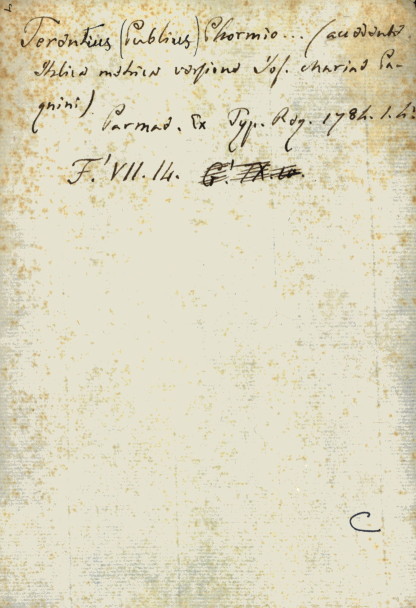 Terentius (Publius) Phormio... (accedente
Italica metrica versione Jos. Mariae Pa-
gnini)
Parmae. Ex Typ. Reg. 1784. 1. 4.
F.' VII. 14. G.' IX.
C